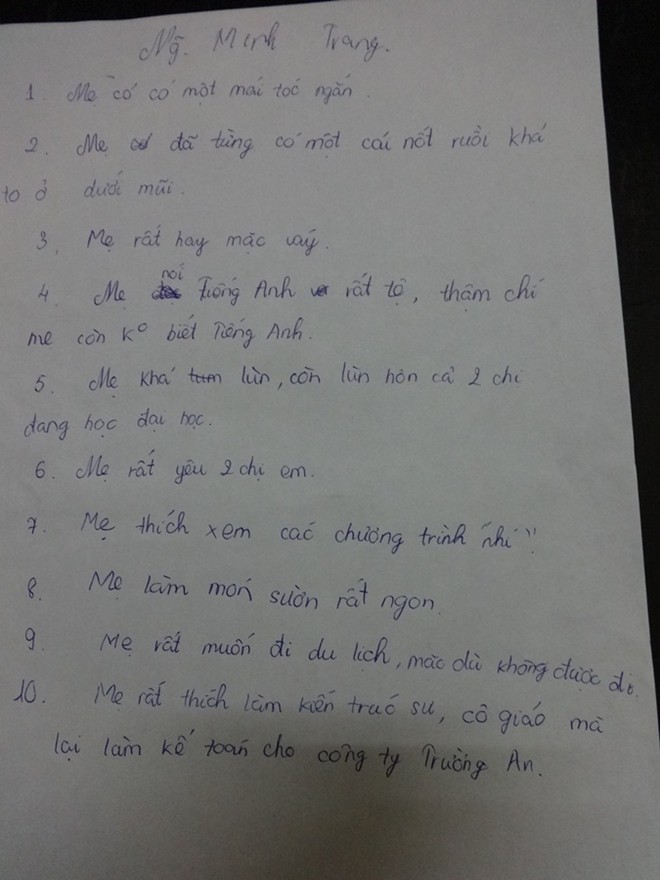 Ng̃. Minh Trang.
1. Mẹ có có một mái tóc ngắn.
2. Mẹ đã từng có một cái nốt ruồi khá
to ở dưới mũi.
3. Mẹ rất hay mặc váy.
4. Mẹ nói Tiếng Anh rất tệ, thậm chí
mẹ còn K° biết Tiếng Anh.
5. Mẹ khá lùn, còn lùn hơn cả 2 chị
đang học đại học.
6. Mẹ rất yêu 2 chị em.
7. Mẹ thích xem các chương trình "nhí".
8. Mẹ làm món sườn rất ngon.
9. Mẹ rất muốn đi du lịch, mặc dù không được đi.
10. Mẹ rất thích làm kiến trúc sư, cô giáo mà
lại làm kế toán cho công ty Trường An.